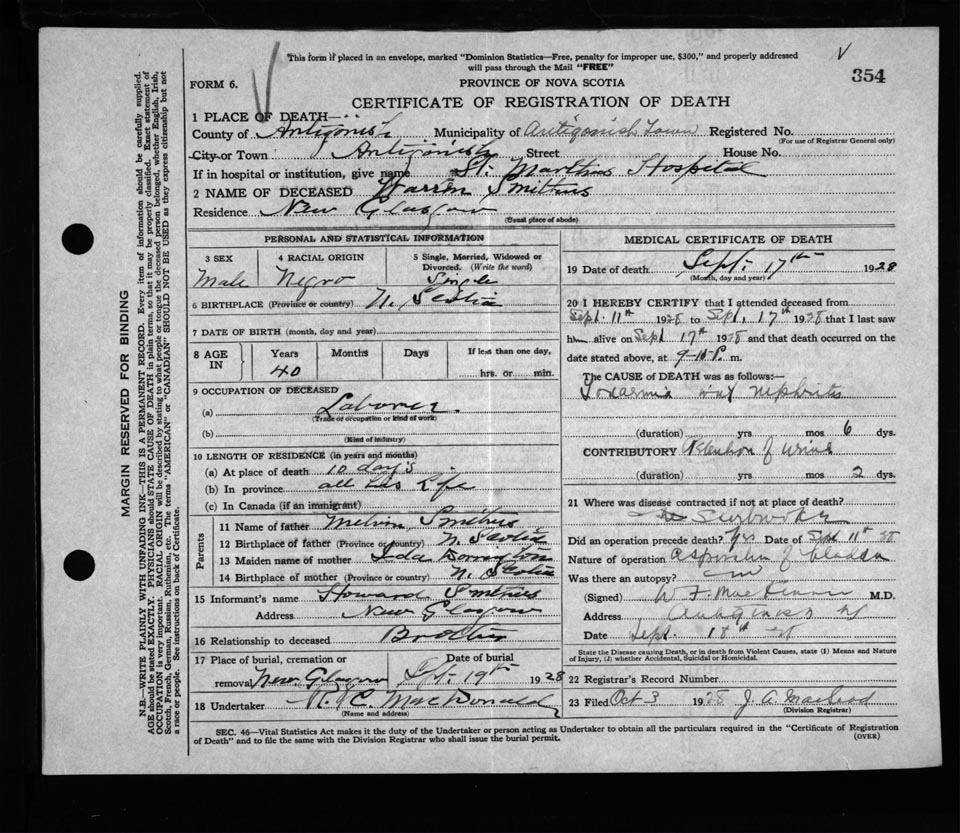 This form if placed in an envelope, marked "Dominion Statistics—Free, penalty for improper use, $300," and properly addressed
will pass through the Mail "FREE"
354
FORM 6.
PROVINCE OF NOVA SCOTIA
CERTIFICATE OF REGISTRATION OF DEATH
1 PLACE OF DEATH—
County of Antigonish Municipality of Antigonish Town Registered No.
(For use of Registrar General only)
City or Town Antigonish Street House No.
If in hospital or institution, give name St. Marthas Hospital
2 NAME OF DECEASED Warren Smithers
Residence New Glasgow
(Usual place of abode)
PERSONAL AND STATISTICAL INFORMATION
3 SEX
Male
4 RACIAL ORIGIN
Negro
5 Single, Married, Widowed or
Divorced. (Write the word)
Single
6 BIRTHPLACE (Province or country) N. Scotia
7 DATE OF BIRTH (month, day and year)
8 AGE IN
Years Months Days If less than one day,
40 hrs. or min.
9 OCCUPATION OF DECEASED
(a) Laborer.
(Trade or occupation or kind of work)
(b)
(Kind of industry)
10 LENGTH OF RESIDENCE (in years and months)
(a) At place of death 10 days
(b) In province all his life
(c) In Canada (if an immigrant)
Parents
11 Name of father Melvin Smithers
12 Birthplace of father (Province or country) N. Scotia
13 Maiden name of mother Ida
14 Birthplace of mother (Province or country) N. Scotia
15 Informant's name Howard Smithers
Address New Glasgow
16 Relationship to deceased Brother
17 Place of burial, cremation or Date of burial
removal New Glasgow Sept. 19th 1928
18 Undertaker MacDonald
(Name and address)
MEDICAL CERTIFICATE OF DEATH
19 Date of death Sept. 17th 1928
(Month, day and year)
20 I HEREBY CERTIFY that I attended deceased from
Sept. 11th 1928 to Sept. 17th 1928 that I last saw
him alive on Sept 17th 1928 and that death occurred on the
date stated above, at P. m.
The CAUSE OF DEATH was as follows:—
Toxaemia nephritis
(duration) yrs mos 6 dys.
CONTRIBUTORY Retention of urine
(duration) yrs mos 2 dys.
21 Where was disease contracted if not at place of death?
Did an operation precede death? yes Date of Sept 11th 28
Nature of operation aspiration of bladder
Was there an autopsy? no
(Signed) W. F. MacKinnon M.D.
Address Antigonish NS
Date Sept. 18th 28
State the Disease causing Death, or in death from Violent Causes, state (1) Means and
Nature of Injury, (2) whether Accidental, Suicidal or Homicidal.
22 Registrar's Record Number
23 Filed Oct 3 1928 J. A. MacLeod
(Division Registrar)
SEC. 46—Vital Statistics Act makes it the duty of the Undertaker or person acting as Undertaker to obtain all the particulars required in the "Certificate of Registration
of Death" and to file the same with the Division Registrar who shall issue the burial permit.
(OVER)
MARGIN RESERVED FOR BINDING
N.B.—WRITE PLAINLY WITH UNFADING INK—THIS IS A PERMANENT RECORD. Every item of information should be carefully supplied.
AGE should be stated EXACTLY. PHYSICIANS should STATE CAUSE OF DEATH in plain terms, so that it may be properly classified. Exact statement of
OCCUPATION is very important. RACIAL ORIGIN will be described by stating to what people or tongue the deceased person belonged, whether English, Irish,
Scotch, French, German, Russian, Ruthenian, etc. The terms "AMERICAN" or "CANADIAN" SHOULD NOT BE USED as they express citizenship but not
a race or people. See instructions on back of Certificate.